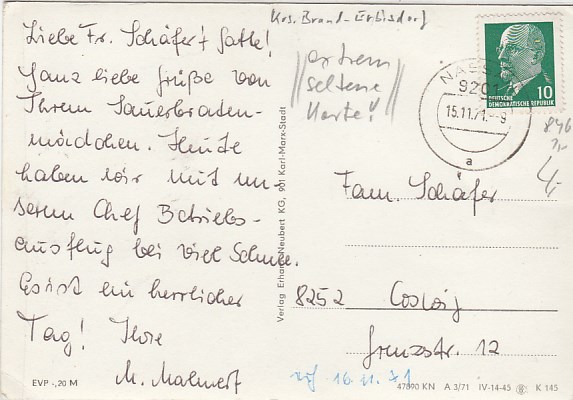 Krs. Brand-Erbisdorf
Liebe Fr. Schäfer + Gatte!
Ganz liebe Grüße von
Ihrem Sauerbraten-
mädchen. Heute
haben wir mit un-
serem Chef Betriebs-
ausflug bei viel Schnee.
Es ist ein herrlicher
Tag! Ihre
M. Mahnert
EVP -,20 M
extrem
seltene
Karte!
Verlag Erhard Neubert KG, 901 Karl-Marx-Stadt
DEUTSCHE
DEMOKRATISCHE REPUBLIK
10
9201
15.11.71.-9
a
846
4,-
Fam. Schäfer
8252 Coswig
Grenzstr. 12
16.11.71
47890 KN A 3/71 IV-14-45 K 145